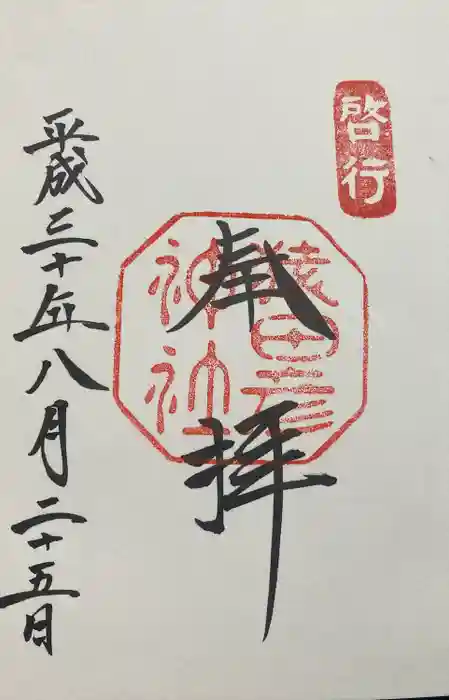 啓行
奉拝
猿田彦
神社
平成三十年八月二十五日